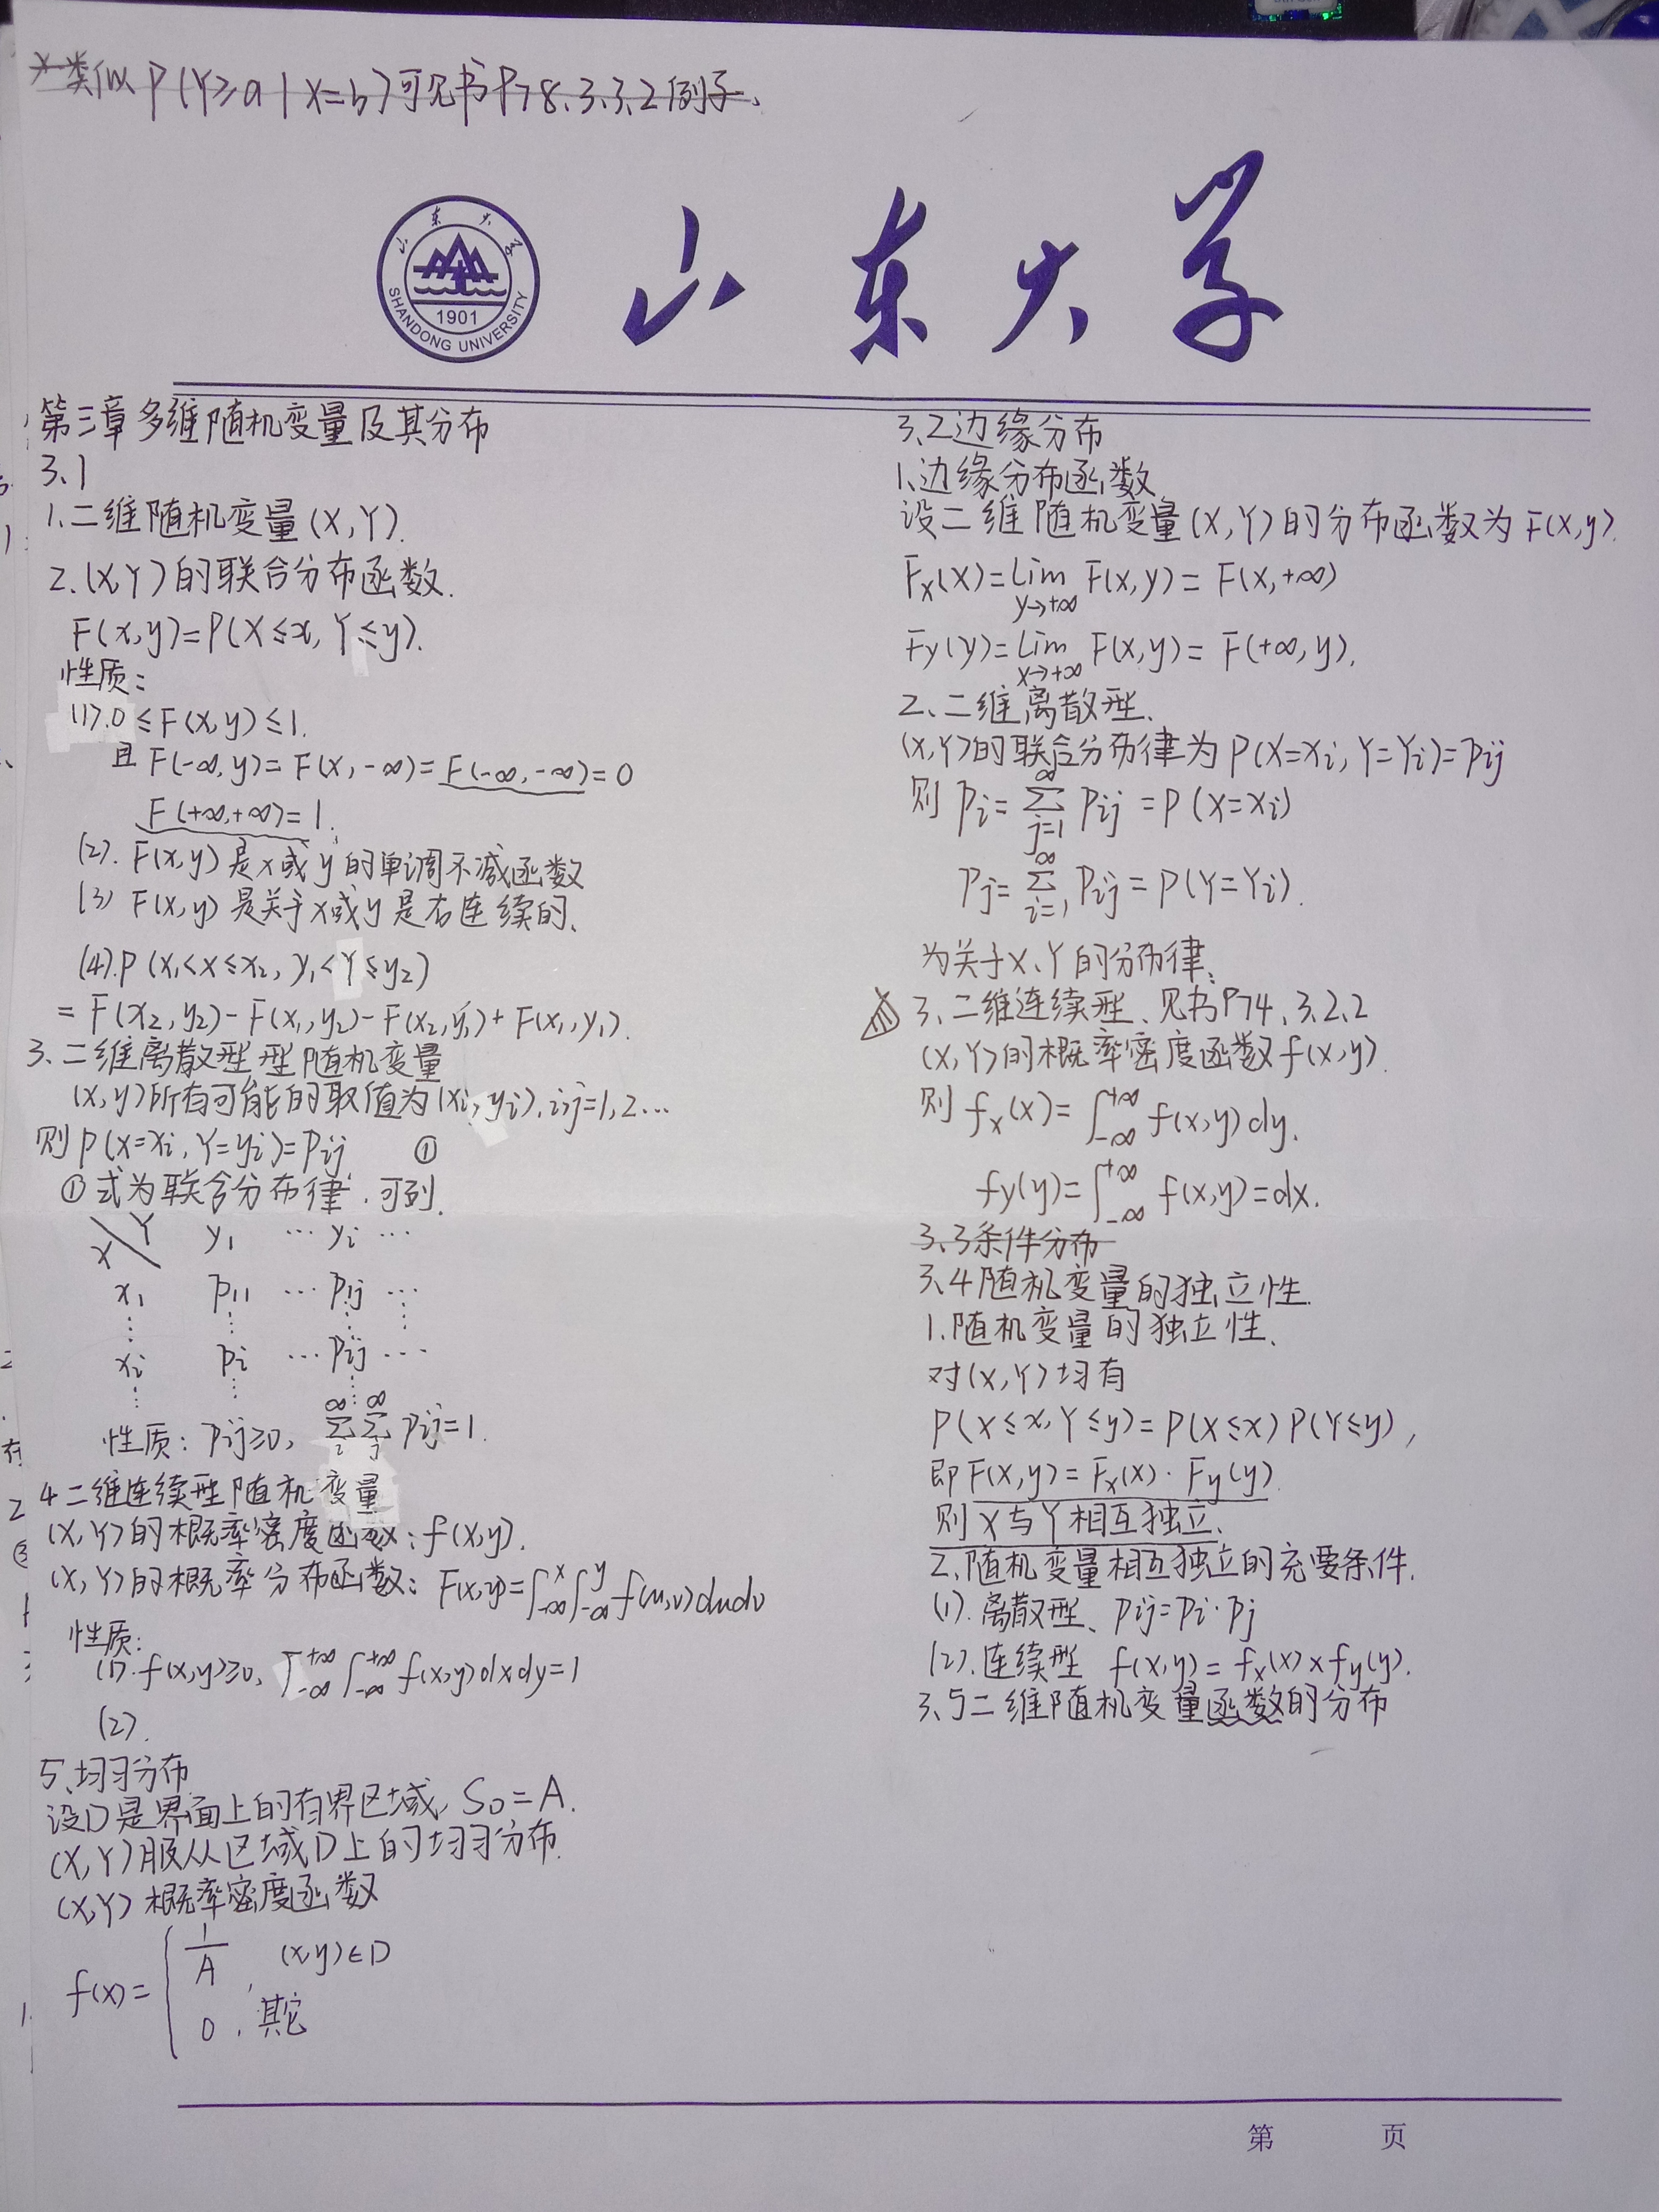 类似P(Y≥a|X=b)可见书P78.3.3.2例子.
山东大学
SHANDONG UNIVERSITY
1901
山东大学
第三章多维随机变量及其分布
3.1
1.二维随机变量(X,Y).
2.(X,Y)的联合分布函数.
F(x,y)=P(X≤x, Y≤y).
性质:
(1).0≤F(x,y)≤1.
且F(-∞,y)=F(x,-∞)=F(-∞,-∞)=0
F(+∞,+∞)=1.
(2). F(x,y)是x或y的单调不减函数
(3) F(x,y)是关于x或y是右连续的.
(4).P(x₁<X≤x₂, y₁<Y≤y₂)
=F(x₂,y₂)-F(x₁,y₂)-F(x₂,y₁)+F(x₁,y₁).
3.二维离散型型随机变量
(x,y)所有可能的取值为(xi,yi).i,j=1,2…
则P(X=xi,Y=yi)=Pij ①
①式为联合分布律.可列.
X Y y₁ … yi …
x₁ P₁₁ … P₁j …
⋮ ⋮ ⋮ ⋮
xi Pi … Pij …
⋮ ⋮ ⋮
性质: Pij≥0, ∞∑i ∞∑j Pij=1.
4二维连续型随机变量
(X,Y)的概率密度函数:f(x,y).
(X,Y)的概率分布函数: F(x,y)=∫_{-∞}^{x}∫_{-∞}^{y}f(u,v)dudv
性质:
(1).f(x,y)≥0, ∫_{-∞}^{+∞}∫_{-∞}^{+∞}f(x,y)dxdy=1
(2).
5.均匀分布
设D是界面上的有界区域, S_D=A.
(X,Y)服从区域D上的均匀分布.
(X,Y)概率密度函数
f(x)={ 1/A, (x,y)∈D
0, 其它
3.2边缘分布
1.边缘分布函数
设二维随机变量(X,Y)的分布函数为F(x,y).
Fx(x)=lim_{y→+∞} F(x,y)=F(x,+∞)
Fy(y)=lim_{x→+∞} F(x,y)=F(+∞,y).
2、二维离散型.
(X,Y)的联合分布律为P(X=xi,Y=Yi)=Pij
则 Pi=∑_{j=1}^{∞} Pij=P(X=xi)
Pj=∑_{i=1}^{∞} Pij=P(Y=Yi).
为关于X、Y的分布律.
3.二维连续型、见书P74.3.2.2
(X,Y)的概率密度函数f(x,y).
则fx(x)=∫_{-∞}^{+∞}f(x,y)dy.
fy(y)=∫_{-∞}^{+∞}f(x,y)=dx.
3.3条件分布
3.4随机变量的独立性.
1.随机变量的独立性.
对(X,Y)均有
P(X≤x,Y≤y)=P(X≤x)P(Y≤y),
即F(x,y)=Fx(x)·Fy(y).
则X与Y相互独立.
2.随机变量相互独立的充要条件.
(1).离散型、Pij=Pi·Pj
(2).连续型 f(x,y)=fx(x)×fy(y).
3.5二维随机变量函数的分布
第 页